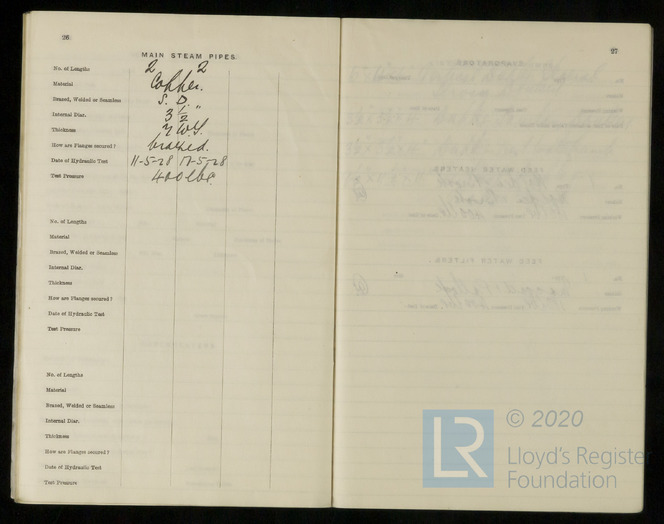 26
MAIN STEAM PIPES.
No. of Lengths 2 2
Material Copper.
Brazed, Welded or Seamless S. D.
Internal Diar. 3 1/2"
Thickness 7 W.G.
How are Flanges secured? brazed.
Date of Hydraulic Test 11-5-28 17-5-28
Test Pressure 400 lbs.
No. of Lengths
Material
Brazed, Welded or Seamless
Internal Diar.
Thickness
How are Flanges secured?
Date of Hydraulic Test
Test Pressure
No. of Lengths
Material
Brazed, Welded or Seamless
Internal Diar.
Thickness
How are Flanges secured?
Date of Hydraulic Test
Test Pressure
27
LR
© 2020
Lloyd's Register
Foundation